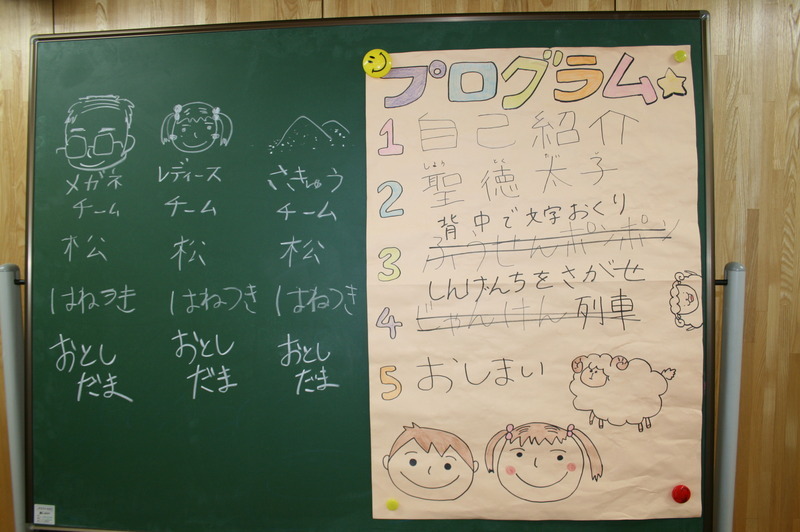 メガネ
チーム
松
はねつき
おとし
だま
レディース
チーム
松
はねつき
おとし
だま
さきゅう
チーム
松
はねつき
おとし
だま
プログラム
1 自己紹介
しょう とく たい し
2 聖徳太子
背中で文字おくり
3 ふうせんポンポン
しんげんちをさがせ
4 じゃんけん列車
5 おしまい